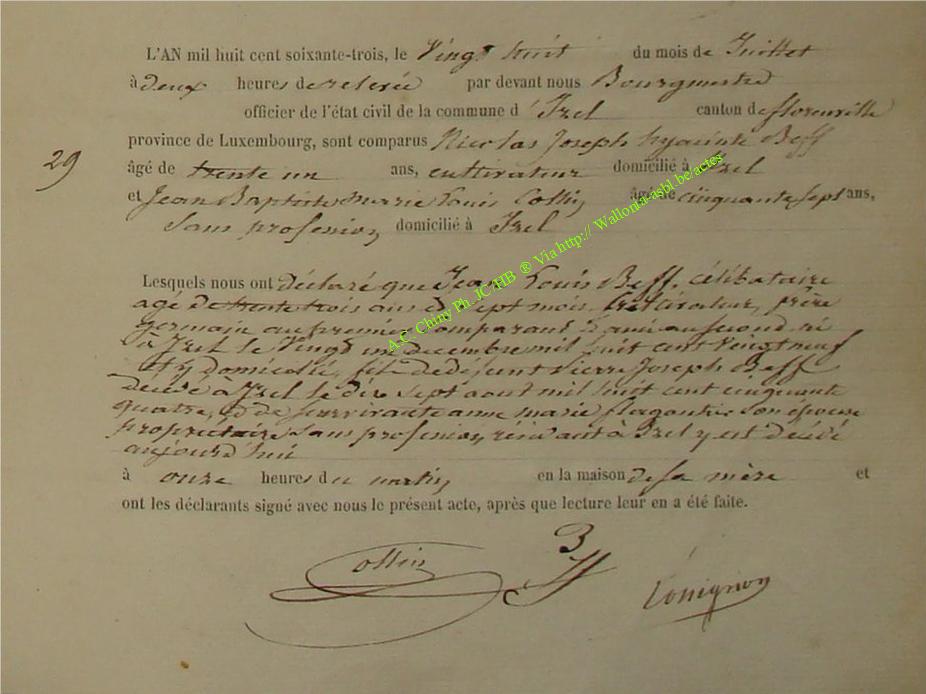 L'AN mil huit cent soixante-trois, le Vingt huit du mois de Juillet
à deux heures de relevée par devant nous Bourgmestre
officier de l'état civil de la commune d'Izel canton de florenville
province de Luxembourg, sont comparus Nicolas Joseph hyacinte Beff
29
âgé de trente un ans, cultivateur domicilié à Izel
et Jean Baptiste marie Louis Collin âgé de cinquante sept ans,
Sans profession domicilié à Izel
Lesquels nous ont déclaré que Jean Louis Beff, célibataire
agé de trente trois ans & sept mois, Cultivateur, frère
germain au premier Comparant & ami au second né
à Izel le Vingt un decembre mil huit cent vingt neuf
et y domicilié, fils de défunt Pierre Joseph Beff
decédé à Izel le dix sept aout mil huit cent cinquante
quatre, & de survivante anne marie son épouse
propriétaire sans profession, résidant à Izel y est décédé
aujourd'hui
à onze heures du matin en la maison de sa mère et
ont les déclarants signé avec nous le présent acte, après que lecture leur en a été faite.
Collin Bff
A.C. Chiny Ph. JC/HB ® Via http:// Wallonia-asbl.be/actes